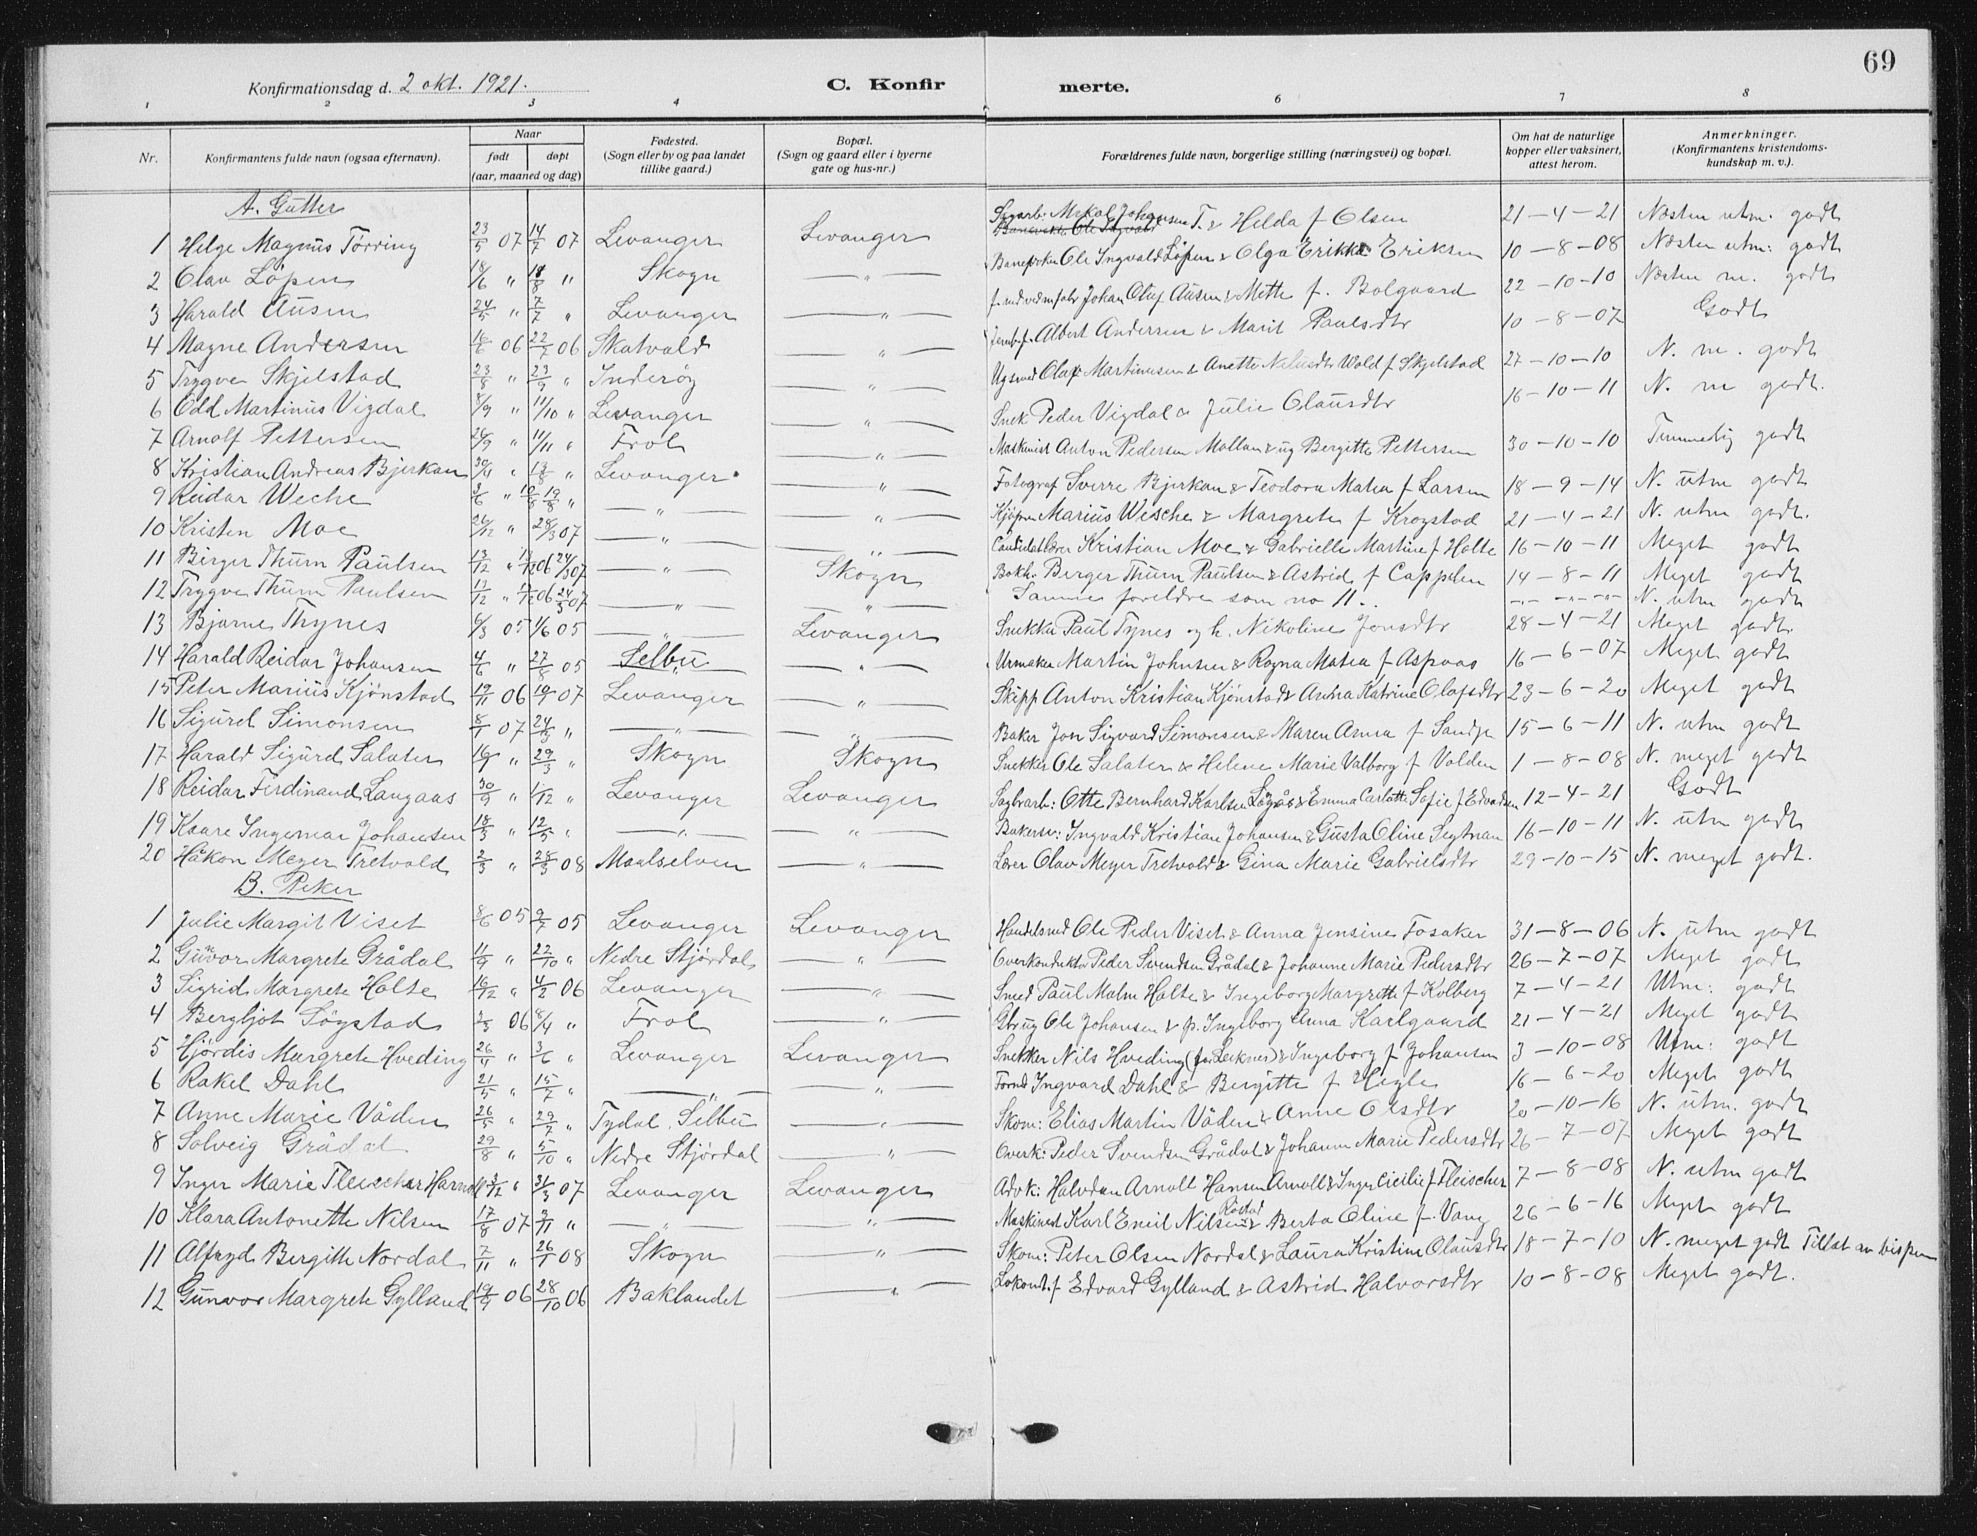 69
Konfirmationsdag d. 2 okt. 1921.
C. Konfir merte.
1 2 3 4 6 7 8
Nr.
Konfirmantens fulde navn (ogsaa efternavn).
Naar
født døpt
(aar, maaned og dag)
Fødested.
(Sogn eller by og paa landet
tillike gaard.)
Bopæl.
(Sogn og gaard eller i byerne
gate og hus-nr.)
Forældrenes fulde navn, borgerlige stilling (næringsvei) og bopæl.
Om hat de naturlige
kopper eller vaksinert,
attest herom.
Anmerkninger.
(Konfirmantens kristendoms-
kundskap m. v.).
A. Gutter
1 Helge Magnus Tørring 23/5 07 14/7 07 Levanger Levanger Johansen T. & Helda f Olsen 21-4-21 Næsten utm. godt
2 Olav Löpen 18/6 " 18/8 " Skogn — " — Ole Ingvald Löpen & Olga Erikka Eriksen 10-8-08 Næsten utm: godt
3 Harald Ausen 24/5 " 7/7 " Levanger — " — Johan Olaf Ausen & Mette f. Bolgaard 22-10-10 Næsten m. godt
4 Magne Andersen 06 22/7 06 Skatvold — " — Albert Andersen & Marit Paulsdtr 10-8-07 Godt
5 Trygve Skjelstad 23/8 " 23/9 " Inderøy — " — Olaf Martinusen & Anette Wold f Skjelstad 27-10-10 N. m. godt
6 Odd Martinus Vigdal 8/9 " 11/10 " Levanger — " — Snek Peder Vigdal & Julie Olausdtr 16-10-11 N. m godt.
7 Arnolf Pettersen 26/9 " 11/11 " Frol — " — Maskinist Anton Pedersen Mollan & ug Bergitte Pettersen 30-10-10 Temmelig godt
8 Kristian Andreas Bjerkan 30/11 " 13/8 " Levanger — " — Fotograf Sverre Bjerkan & Teodora Matea f Larsen 18-9-14 N. utm godt
9 Reidar Weche " 19/8 " — " — — " — Marius Wesche & Margrete f Krogstad 21-4-21 N. utm godt.
10 Kristen Moe 26/12 " 28/3 07 — " — — " — Kristian Moe & Gabrielle Martine f Holte 16-10-11 Meget godt
11 Birger Thurn Paulsen 13/12 06 24/3 07 — " — Skogn Bokh. Berger Thurn Paulsen & Astrid f Cappelen 14-8-11 Meget godt
12 Trygve Thurn Paulsen 12/12 " 06 24/3 07 — " — — " — Sammes foreldre som no 11. N. utm godt
13 Bjarne Thynes 6/3 05 1/6 05 — " — Levanger Snekker Paul Tynes og h. Nikoline Jonsdtr 28-4-21 Meget godt
14 Harald Reidar Johansen 4/6 " 27/8 05 Selbu — " — Urmaker Martin Johnsen & Ragna Matea f Aspaas 16-6-07 Meget godt
15 Peter Marius Kjönstad 19/11 06 19/1 07 Levanger — " — Skipp Anton Kristian Kjönstad & Anna Katrine Olafsdtr 23-6-20 Meget godt
16 Sigurd Simonsen 8/1 07 24/3 " — " — — " — Baker Jon Sigvard Simonsen & Maren Anna f Sandge 15-6-11 N. utm godt
17 Harald Sigurd Salater " 29/3 " Skogn Skogn Snekker Ole Salater & Helene Marie Valborg f Volden 1-8-08 N. meget godt
18 Reidar Ferdinand Langaas 30/9 " 1/12 " Levanger Levanger Sagbarb: Otte Bernhard Karlsen & Emma Carlotte Sofie f Edvardsen 12-4-21 Godt
19 Kaare Ingemar Johansen 18/3 " 12/5 " — " — — " — Bakersv: Ingvald Kristian Johansen & Gusta Oline Segtnan 16-10-11 N. utm godt
20 Håkon Meyer Tretvold 2/3 " 28/3 08 Maalselven — " — Lærer Olav Meyer Tretvold & Gina Marie Gabrielsdtr 29-10-15 N. meget godt.
B. Piker
1 Julie Margit Viset 8/6 05 9/7 05 Levanger Levanger Handelsmd Ole Peder Viset & Anna Jensine Fosaker 31-8-06 N. utm godt
2 Guvor Margrete Grådal 11/9 " 22/10 " Nedre Stjørdal — " — Overkonduktør Peder Svendsen Grådal & Johanne Marie Pedersdtr 26-7-07 Meget godt
3 Sigrid Margrete Holte 16/12 " 4/2 06 Levanger — " — Smed Paul Malm Holte & Ingeborg Margrethe f Kolberg 7-4-21 Utm: godt
4 Bergljot Søgstad 2/3 06 8/4 " Frol — " — Gbrug Ole Johansen & p. Ingeborg Anna Karlgaard 21-4-21 Meget godt
5 Hjördis Margrete Hveding 26/4 " 3/6 " Levanger Levanger Snekker Nils Hveding & Ingeborg f Johansen 3-10-08 Utm: godt
6 Rakel Dahl 21/5 " 15/7 " — " — — " — Ingvard Dahl & Bergitte f Hegle 16-6-20 Meget godt
7 Anne Marie Våden 26/5 " 29/7 " Tydal Selbu — " — Skom: Elias Martin Våden & Anne Olsdtr 20-10-16 N. utm. godt
8 Solveig Grådal 29/8 " 5/10 " Nedre Stjørdal — " — Overk: Peder Svendsen Grådal & Johanne Marie Pedersdtr 26-7-07 Meget godt
9 Inger Marie Fleischer " 31/3 07 Levanger Levanger Advk: Halvdan Arnolt Hansen Arnolt & Inger Cicilie f Fleischer 7-8-08 N. utm godt
10 Klara Antonette Nilsen 17/8 07 2/11 " — " — — " — Maskinist Karl Emil Nilsen & Berta Oline f. Vang 26-6-16 Meget godt
11 Alfhyd Bergitte Nordal 7/11 " 26/1 08 Skogn — " — Skom: Peter Olsen Nordal & Laura Kristine Olausdtr 18-7-10 N. meget godt Tillat av bispen
12 Gunvor Margrete Gylland 19/9 06 28/10 06 Baklandet — " — Lokomt. f Edvard Gylland & Astrid Halvorsdtr 10-8-08 Meget godt.